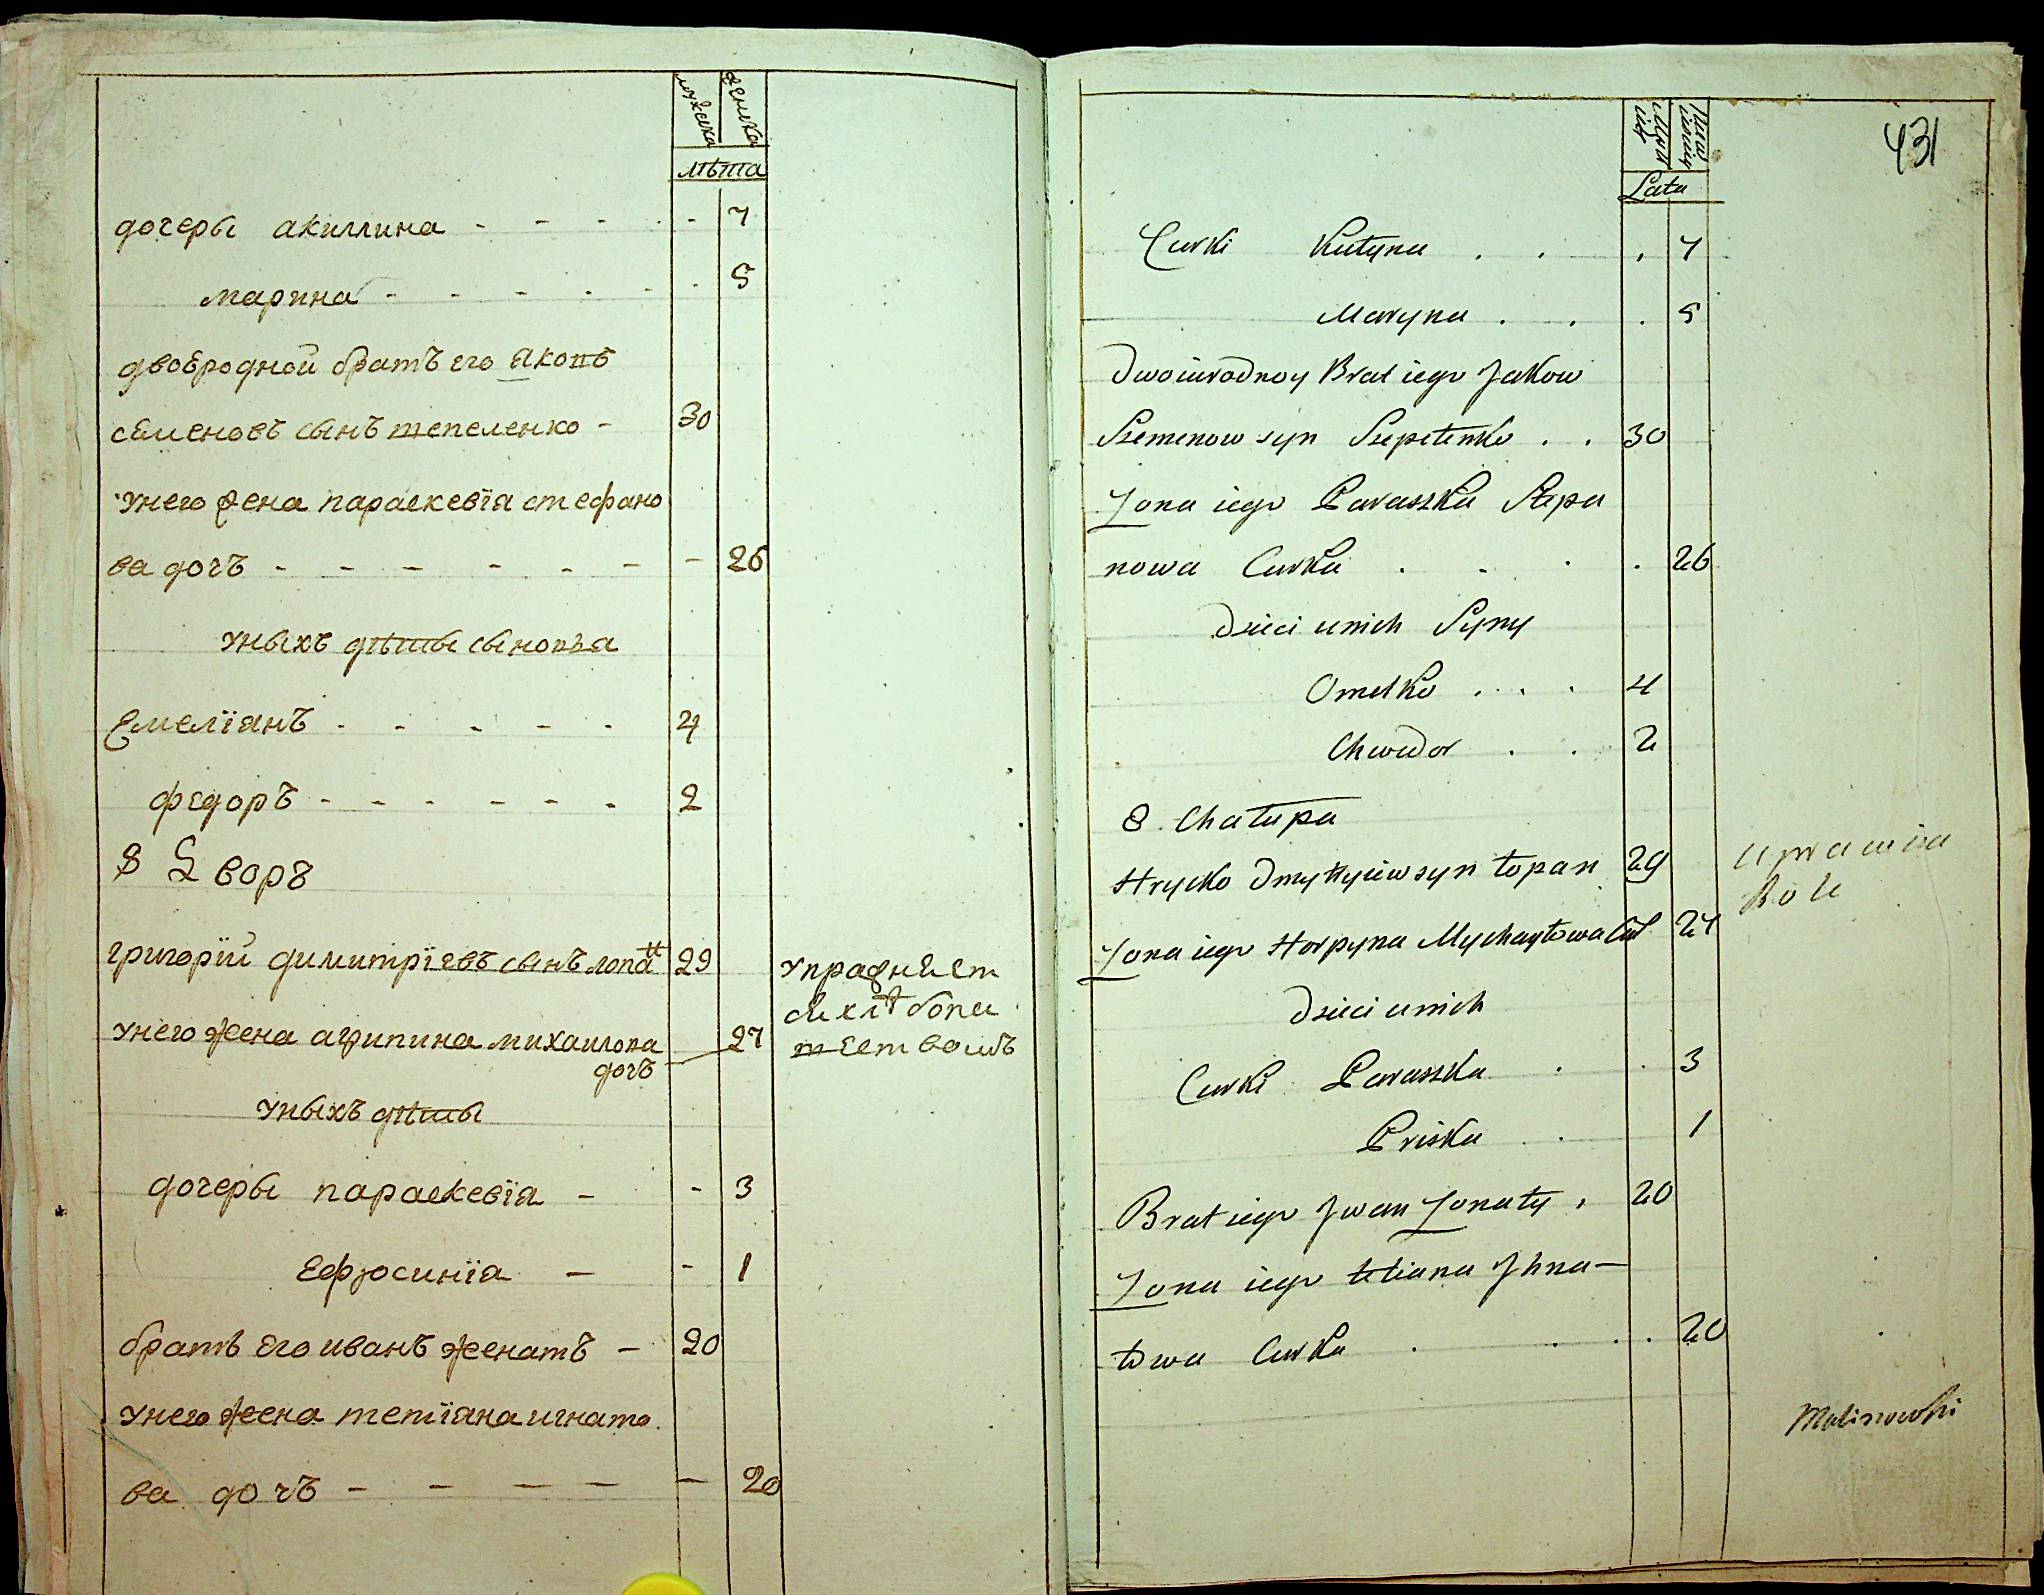 мужска женска
лѣта
дочеры акиллина - - - - 7
марина - - - - - - 5
двоеродной братъ его яковъ
семеновъ сынъ шепеленко - 30
унего жена параскевїя стефано
ва дочъ - - - - - - - 26
уныхъ дѣты сыновья
Емелїянъ - - - - - 4
федоръ - - - - - - 2
8 Дворъ
григорїй димитрїевъ сынъ лопан 29
упражняет
ся хлѣбопа
шеством
унего жена агрипина михаилова
дочъ 27
уныхъ дѣты
дочеры параскевїя - - 3
Ефросинїя - - 1
братъ Его иванъ женатъ - 20
унего жена тетїяна игнато
ва дочъ - - - - - 20
431
Lata
Curki Kulyna . . . 7
Maryna . . . 5
Dwoiurodnoy Brat iego Jakow
Szemenow syn Szepelenko . . 30
Zona iego Paraszka Stepa
nowa Curka . . . . 26
Dzieci u nich Syny
Omelko . . . . 4
Chwedor . . 2
8. Chałupa
Hrycko Dmytryiew syn Łopan 29
uprawia
Role
Zona iego Horpyna Mychayłowa Cur 27
Dzieci u nich
Curki Paraszka . . 3
Priska . . 1
Brat iego Jwan Zonaty . 20
Zona iego tetiana Jhna-
towa Curka . . . . 20
Malinowski